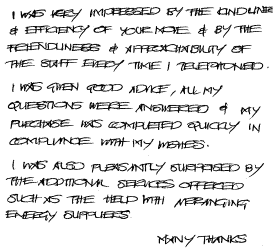 I WAS VERY IMPRESSED BY THE KINDLINESS
& EFFICIENCY OF YOUR MOVE & BY THE
FRIENDLINESS & APPROACHABILITY OF
THE STAFF EVERY TIME I TELEPHONED.
I WAS GIVEN GOOD ADVICE, ALL MY
QUESTIONS WERE ANSWERED & MY
PURCHASE WAS COMPLETED QUICKLY IN
COMPLIANCE WITH MY WISHES.
I WAS ALSO PLEASANTLY SURPRISED BY
THE ADDITIONAL SERVICES OFFERED
SUCH AS THE HELP WITH ARRANGING
ENERGY SUPPLIERS
MANY THANKS